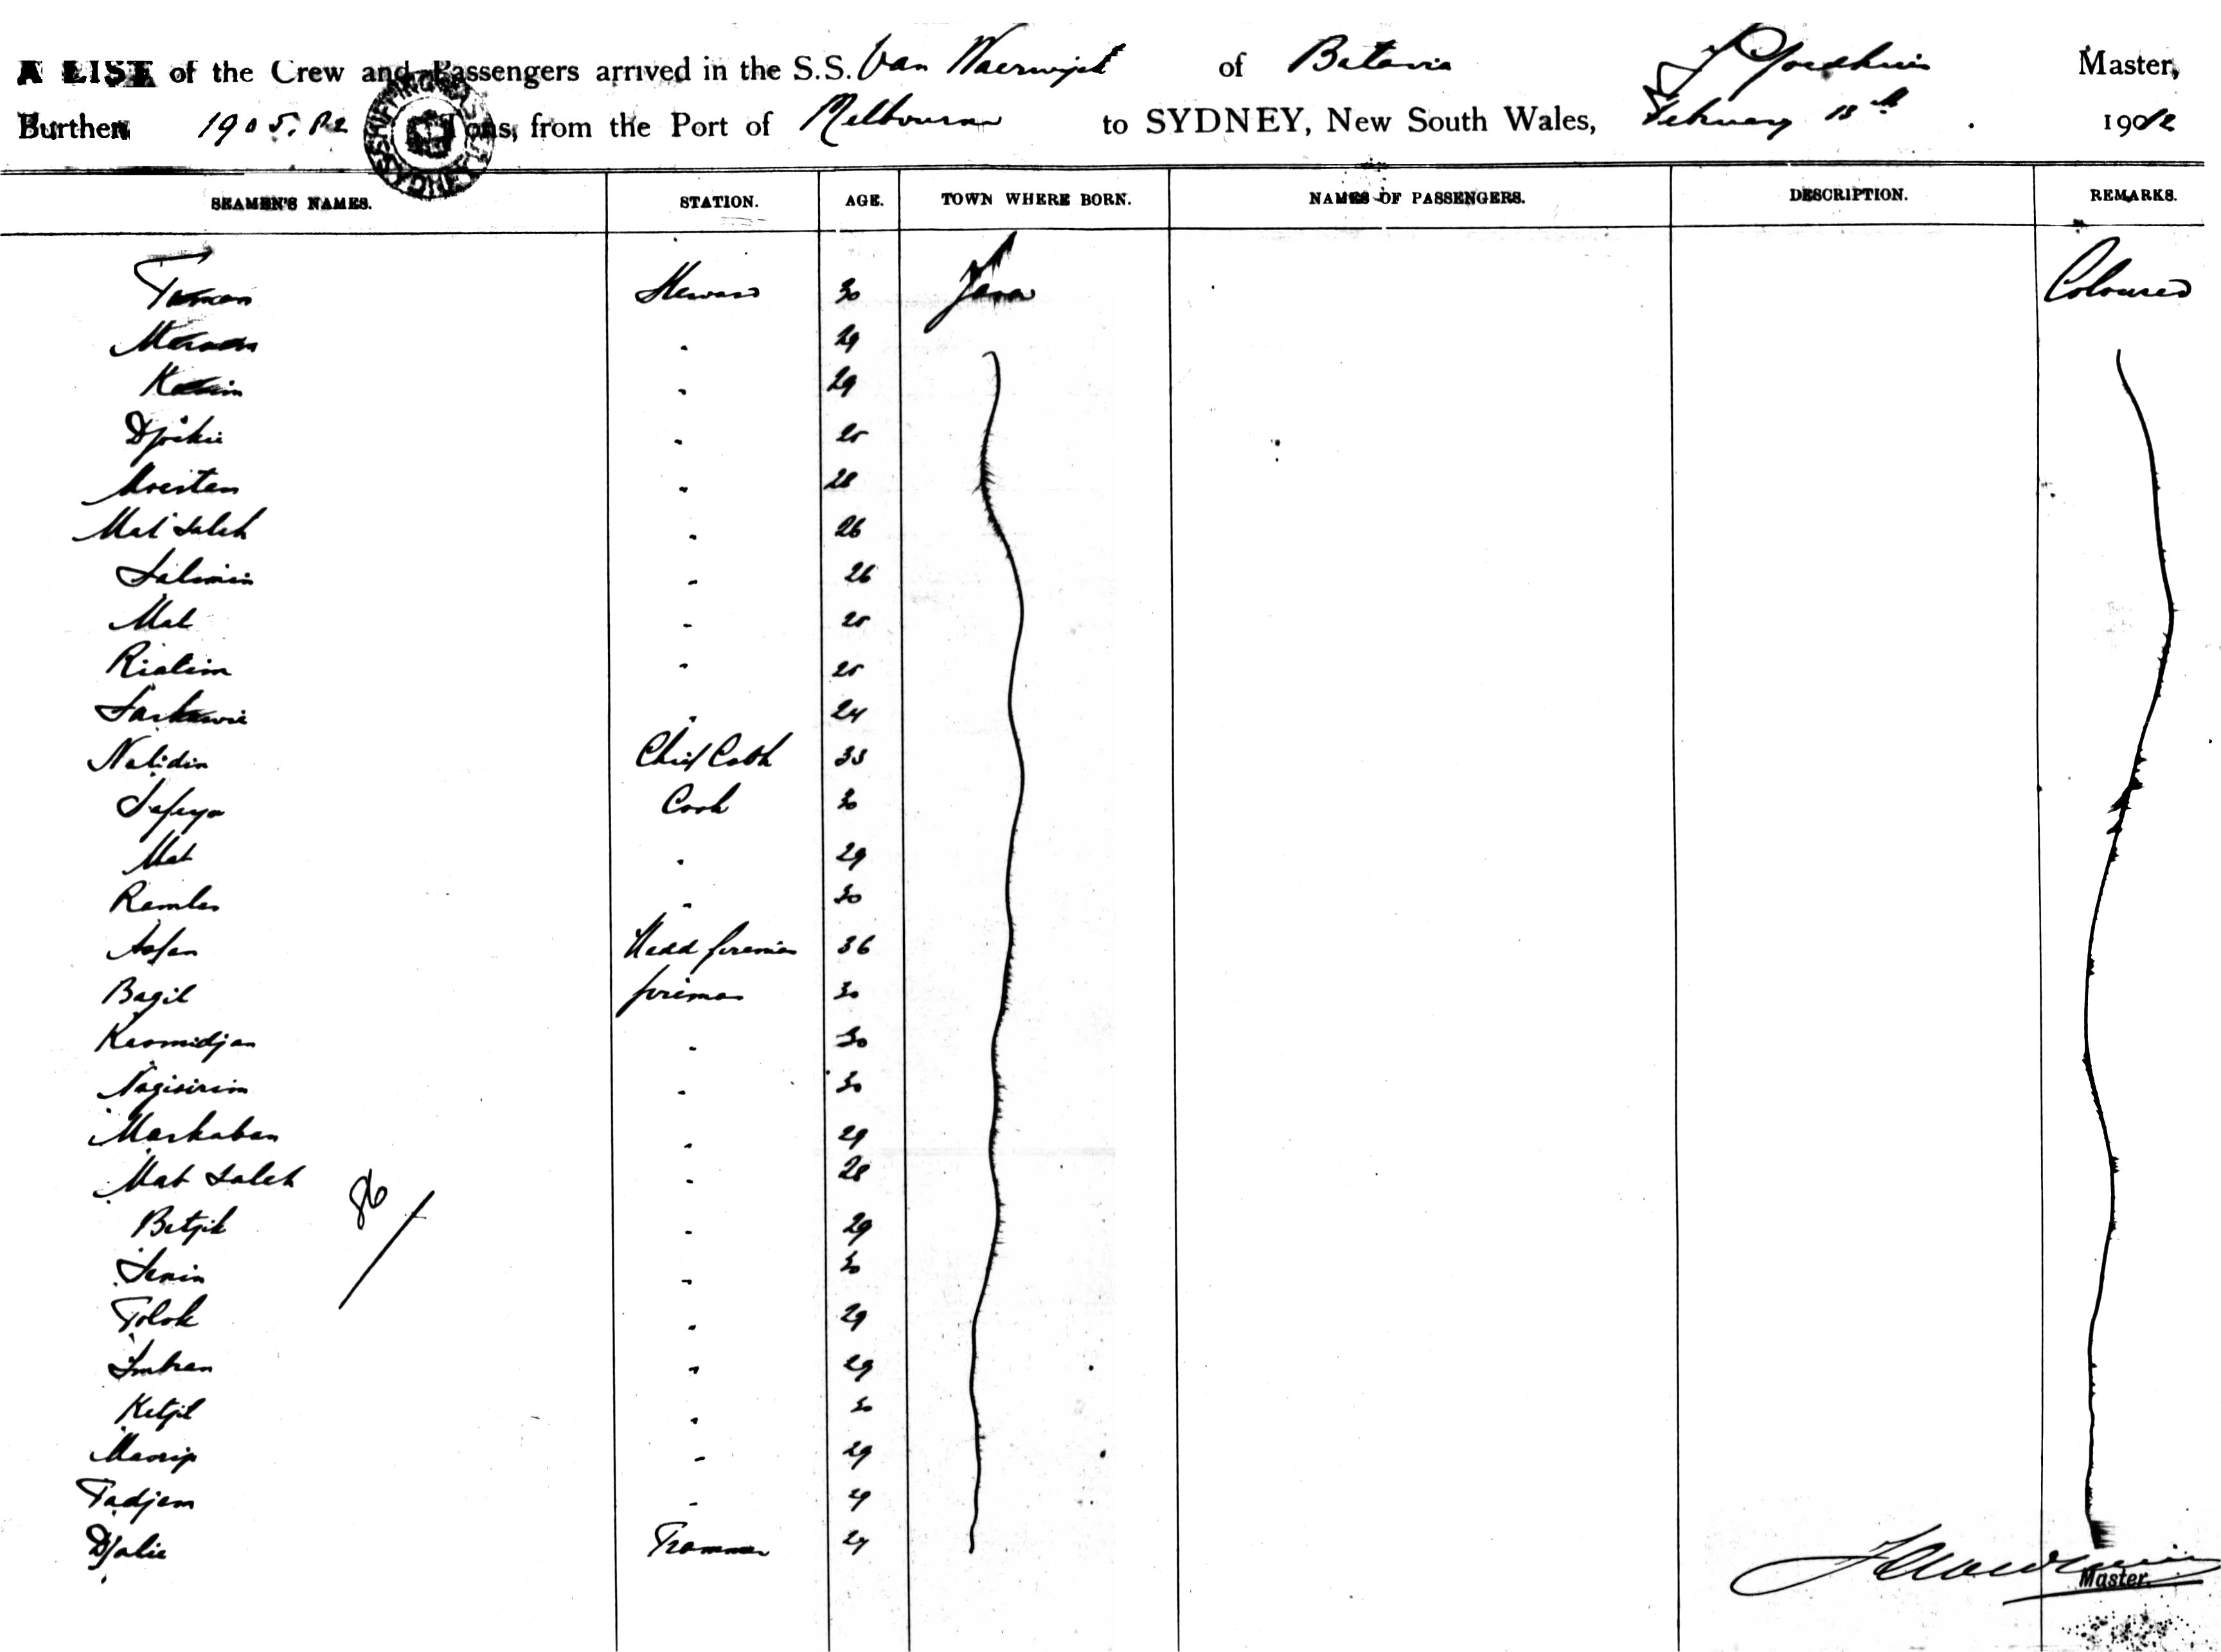 A LIST of the Crew and Passengers arrived in the S.S. Van Waerwijck of Batavia Master,
Burthen 1905.82 Tons, from the Port of Melbourne to SYDNEY, New South Wales, February 13th 1912
SEAMEN'S NAMES. STATION. AGE. TOWN WHERE BORN. NAMES OF PASSENGERS. DESCRIPTION. REMARKS.
Steward 30 Java Coloured
29
29
25
28
Mat Saleh 26
Salimin 26
Mat 25
Rialim 25
Sarkawie 24
Nalidin Chief Cook 33
Cook 30
Mat 29
Ramlan 30
Assan Head fireman 36
Bagil fireman 30
Karomidjan 30
30
Markaban 29
Mat Saleh 28
Betjik 29
Senin 30
Tolok 29
29
Ketjil 30
Manrip 29
Tadjem 29
Djalie Trammer 27
86
Master.